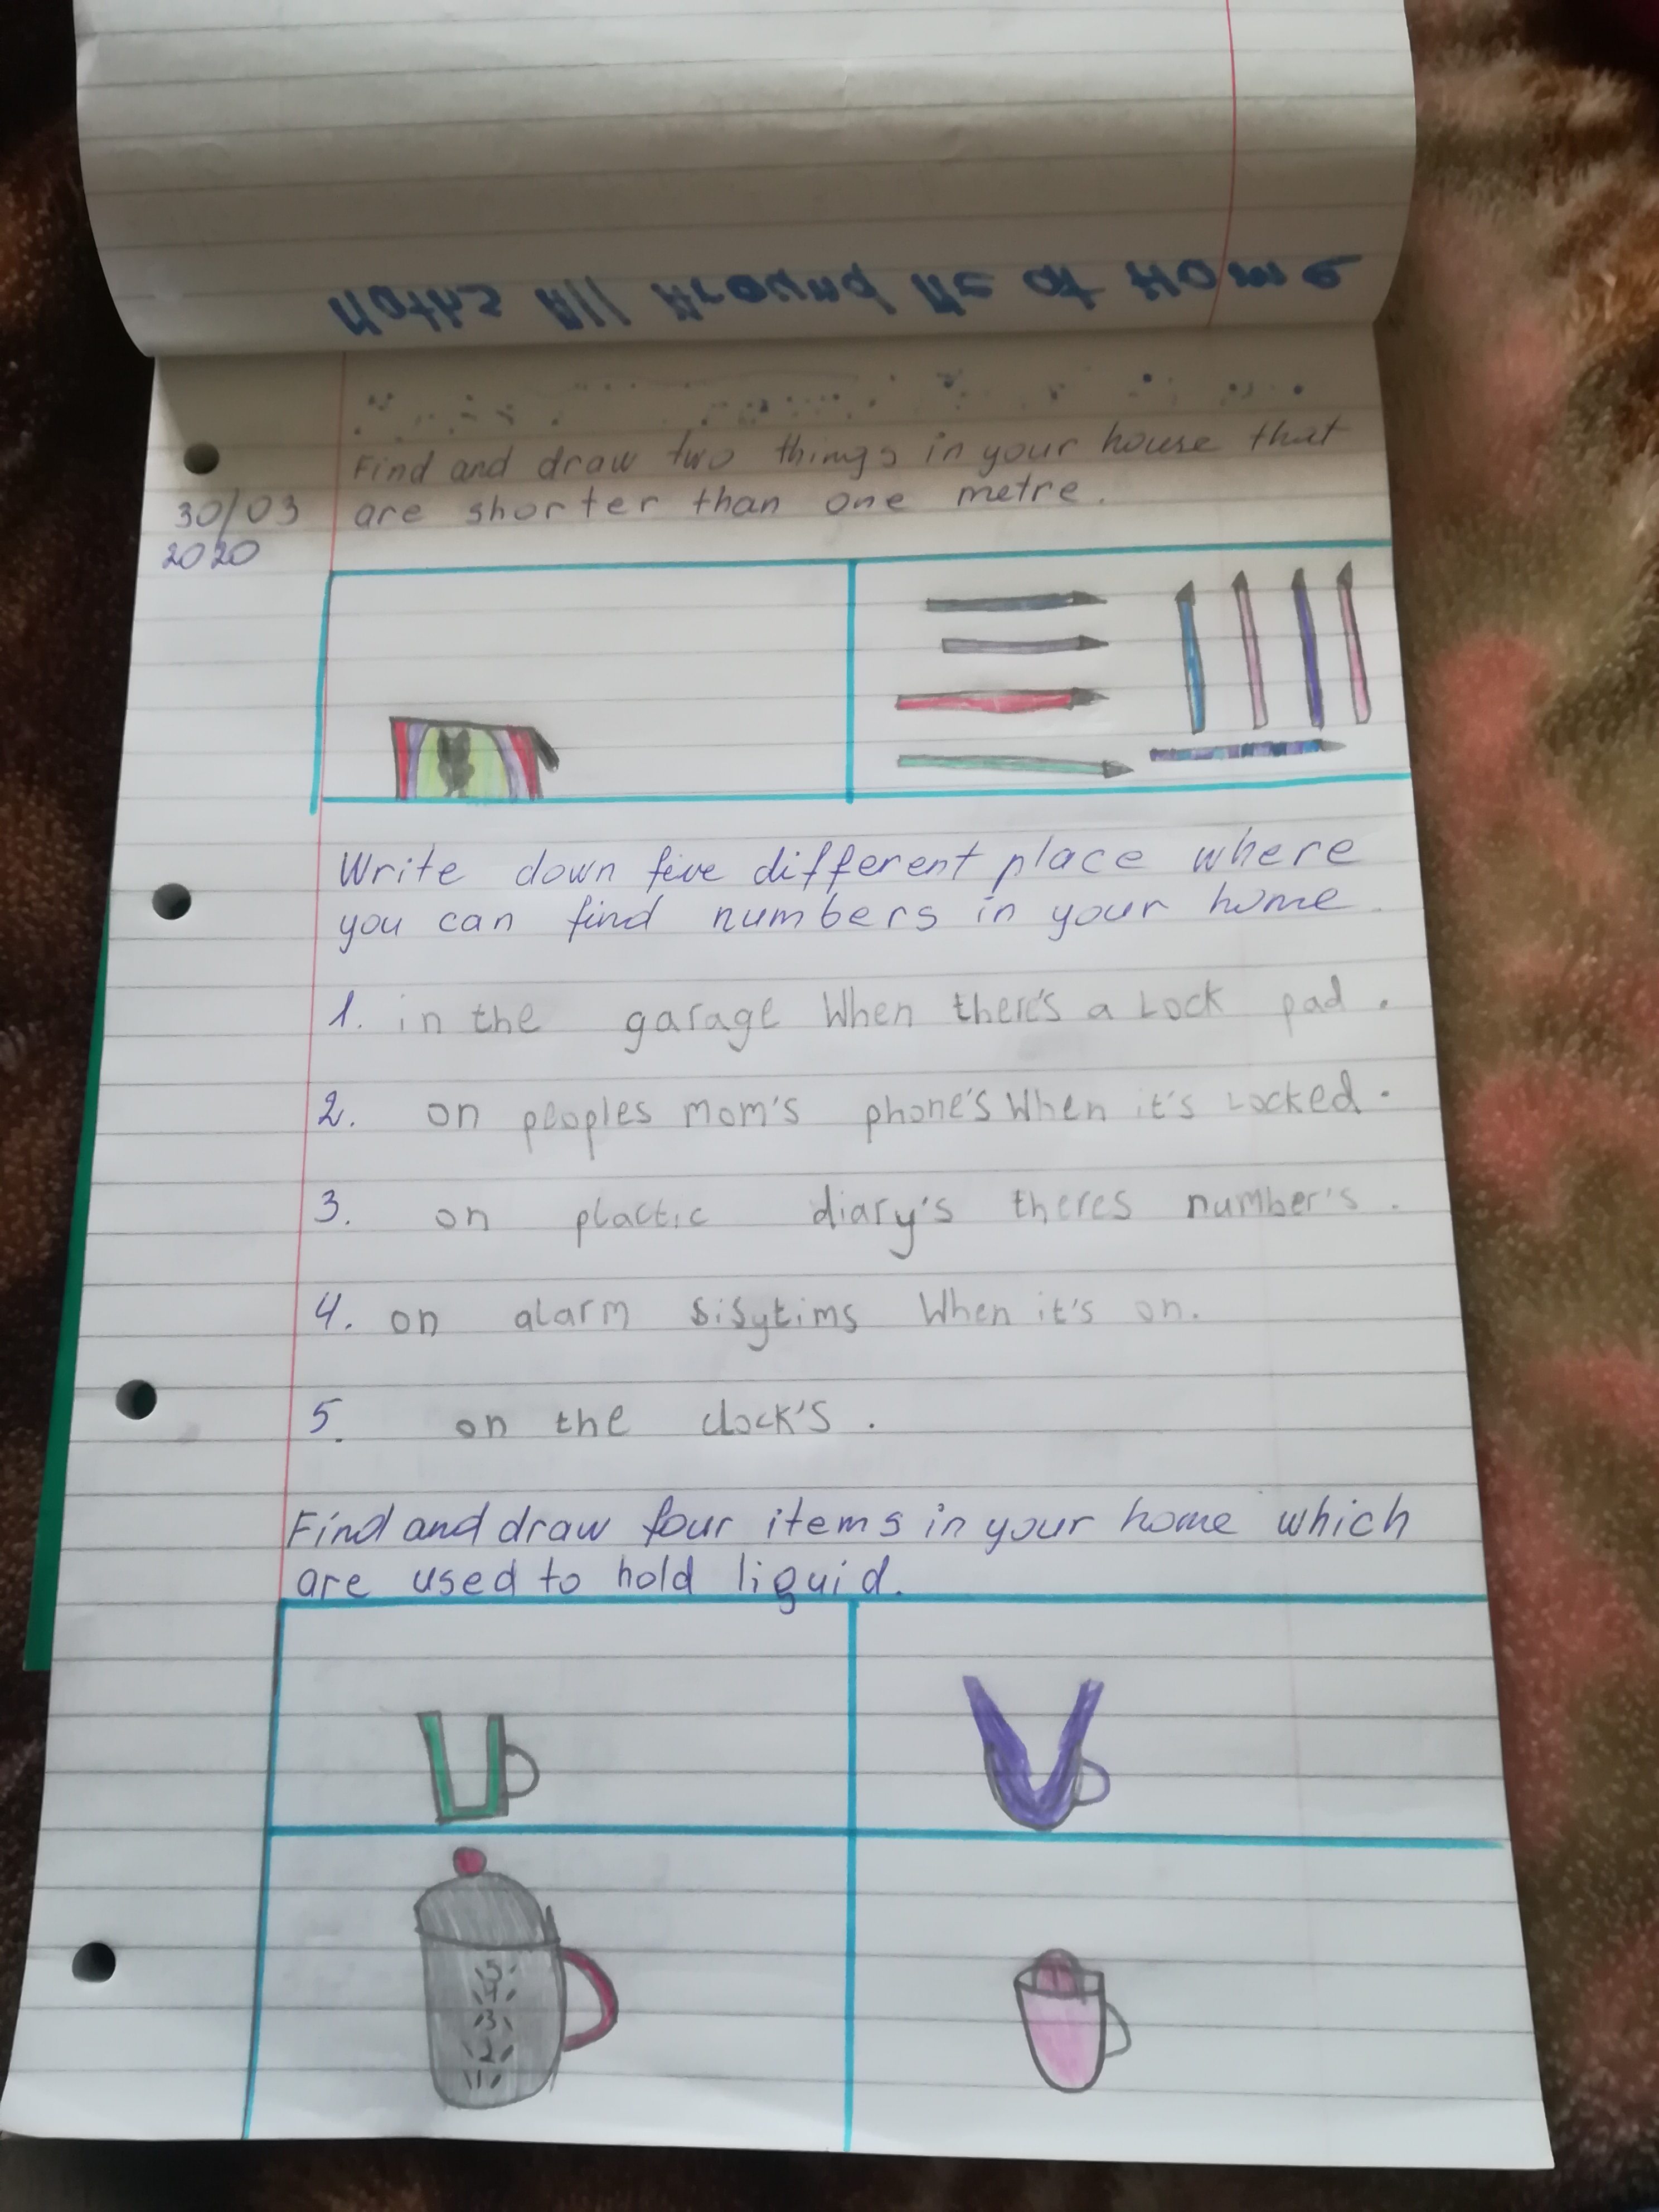 Maths All Around Us at Home
Find and draw two things in your house that
30/03
2020
are shorter than one metre.
Write down five different place where
you can find numbers in your home.
1. in the garage When there's a Lock pad.
2. on peoples mom's phone's When it's Locked.
3. on plactic diary's theres number's.
4. on alarm sisytims When it's on.
5. on the clock's.
Find and draw four items in your home which
are used to hold liquid.
5
4
3
2
1